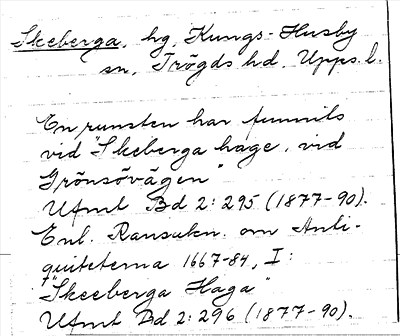 Skeberga, hg, Kungs-Husby
sn, Trögds hd, Upps. l.
En runsten har funnits
vid "Skeberga hage, vid
Grönsövägen"
Ufmt Bd 2: 295 (1877-90).
Enl. Ransakn. om Anti-
quiteterna 1667-84, I:
"Skeeberga Haga"
Ufmt Bd 2: 296 (1877-90).